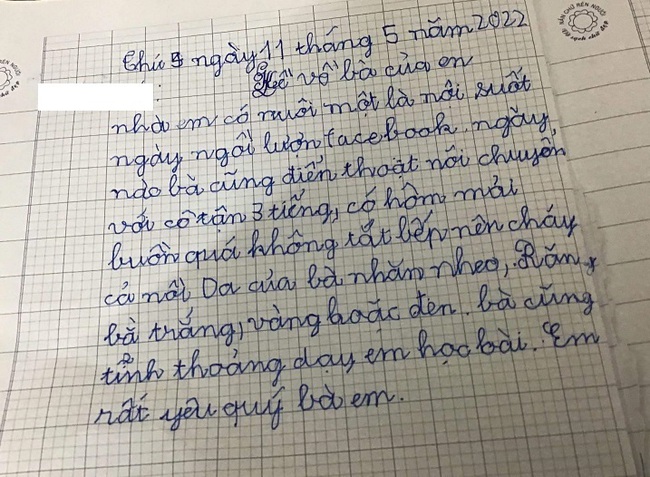 Thứ 5 ngày 11 tháng 5 năm 2022
Kể về bà của em
nhà em có nuôi một là nôi suốt
ngày ngồi lướn facebook. ngày
nào bà cũng điển thoặt nói chuyện
với cô tận 3 tiếng, có hôm mải
buôn quá không tắt bếp nên cháy
cả nồi Da của bà nhăn nheo, Răng
bà trắng, vàng hoặc đen. bà cũng
tỉnh thoảng dạy em học bài. Em
rất yêu quý bà em.